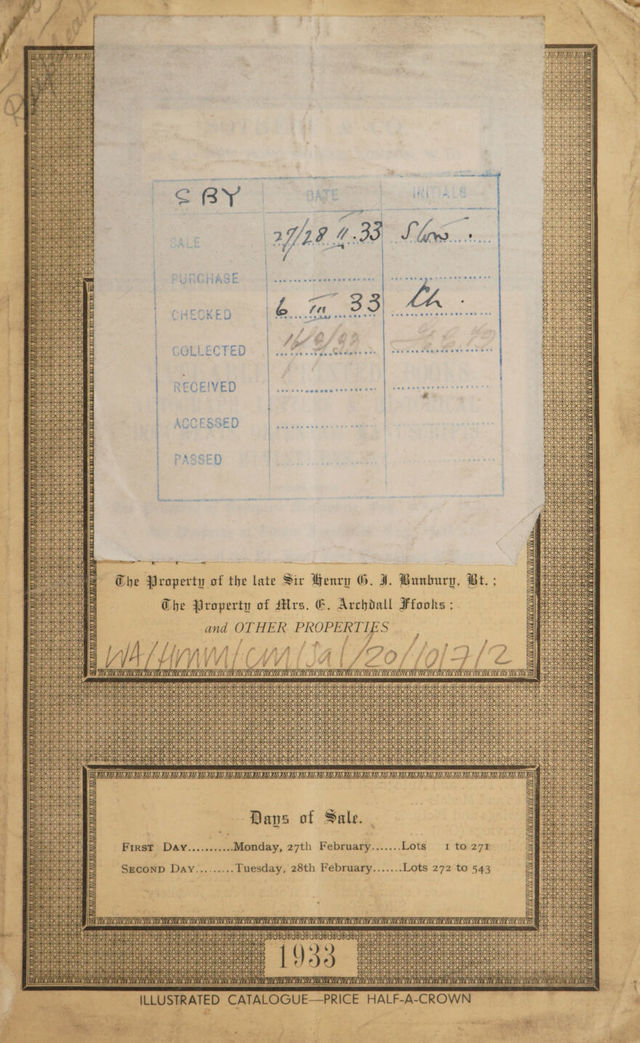 SBY DATE INITIALS
SALE 27/28 II.33 Slow.
PURCHASE
CHECKED 6 III 33 Ch.
COLLECTED
RECEIVED
ACCESSED
PASSED
The Property of the late Sir Henry G. J. Bunbury, Bt.;
The Property of Mrs. E. Archdall Ffooks;
and OTHER PROPERTIES
WA/HMM/CM/Sal/20/107/2
Days of Sale.
FIRST DAY..........Monday, 27th February.......Lots 1 to 271
SECOND DAY.........Tuesday, 28th February.......Lots 272 to 543
1933
ILLUSTRATED CATALOGUE—PRICE HALF-A-CROWN